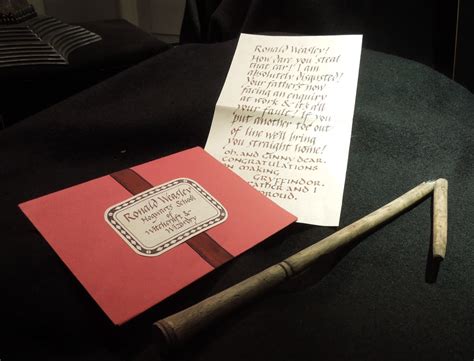 Ronald Weasley!
How dare you steal
that car! I am
absolutely disgusted!
Your father's now
facing an enquiry
at work & it's all
your fault! If you
put another toe out
of line we'll bring
you straight home!
Oh, and Ginny dear,
CONGRATULATIONS
ON MAKING
GRYFFINDOR.
FATHER AND I
PROUD.
Ronald Weasley
Hogwarts School
of
Witchcraft &
Wizardry